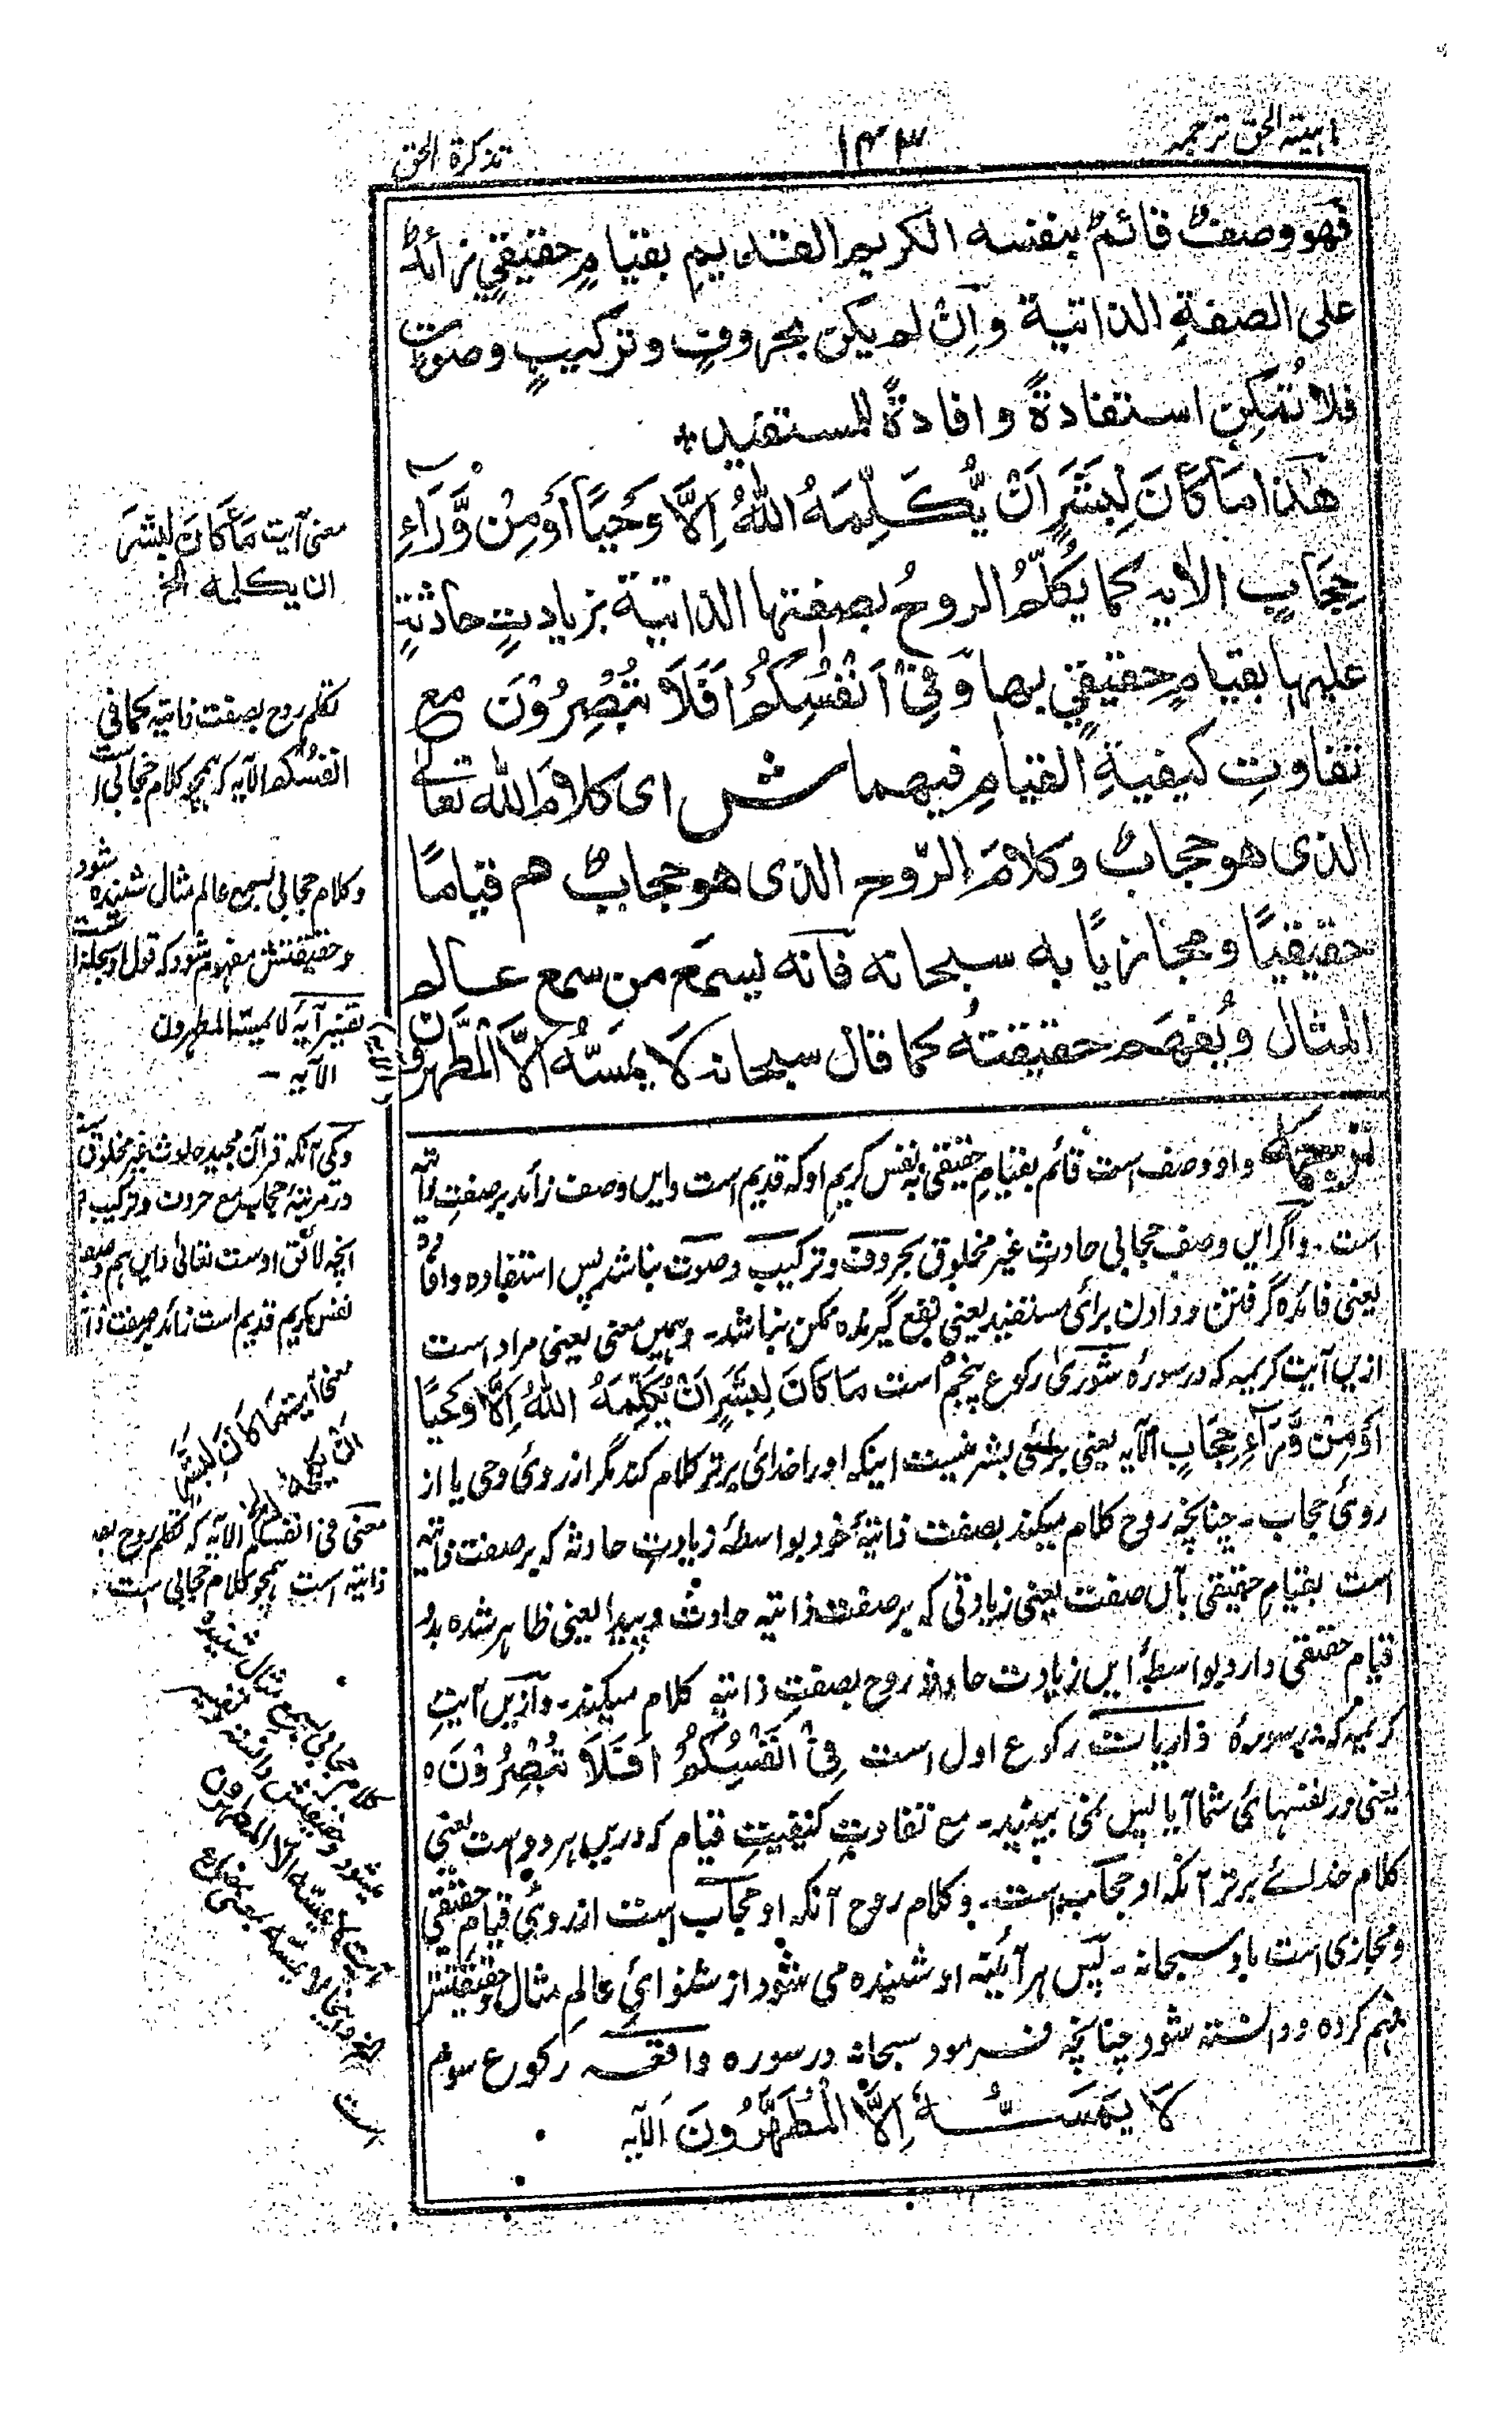 ماهیته الحق ترجمہ
۱۴۳
تذکرة الحق
فهو وصفٌ قائمٌ بنفسه الكريم القديم بقيامٍ حقيقيٍ زائدٌ
على الصفةِ الذاتية وان لم يكن بحروفٍ وتركيبٍ وصوت
فلا تُمكِن استفادةً وافادةً للمستفيد
هٰذا مَا كَانَ لِبَشَرٍ اَنْ يُّكَلِّمَهُ اللهُ اِلَّا وَحْيًا اَوْ مِنْ وَّرَآءِ
حِجَابٍ الاٰيه كما يُكلّمُ الروحُ بصفتها الذاتية بزيادتٍ حادثةٍ
عليها بقيامٍ حقيقيٍ بها وَفِيْ اَنْفُسِكُمْ اَفَلَا تُبْصِرُوْنَ مع
تفاوتِ كيفيةِ القيامِ فيهما ش اى كلامُ الله تعالٰے
الذى هو حجابٌ وكلامُ الرّوح الذى هو حجابٌ هم قيامًا
حقيقيًا ومجازيًا به سبحانه فانه يسمَع من سمع عالم
المثال ويُفهَم حقيقتهُ كما قال سبحانه لَا يَمَسُّهٗ اِلَّا الْمُطَهَّرُوْنَ
ترجمہ واو وصف است قائم بقیامِ حقیقی بنفس کریم او کہ قدیم است وایں وصف زائد بر صفتِ ذاتیہ
است۔ واگر ایں وصفِ حجابی حادثِ غیر مخلوق بحروف وترکیب وصوت نباشد پس استفادہ وافادہ
یعنی فائدہ گرفتن ودادن برائ مستفید یعنی نفع گیرندہ ممکن نباشد۔ وہمیں معنی یعنی مراد است
ازیں آیت کریمہ کہ در سورۂ شوریٰ رکوع پنجم است مَا كَانَ لِبَشَرٍ اَنْ يُّكَلِّمَهُ اللهُ اِلَّا وَحْيًا
اَوْ مِنْ وَّرَآءِ حِجَابٍ الآیہ یعنی برائی بشر نیست اینکہ اورا خدائ برتر کلام کند مگر از روئ وحی یا از
روئ حجاب۔ چنانچہ روح کلام میکند بصفت ذاتیۂ خود بواسطۂ زیادتِ حادثہ کہ بر صفت ذاتیہ
است بقیامِ حقیقی بآں صفت یعنی زیادتی کہ بر صفت ذاتیہ حادث وپیدا یعنی ظاہر شدہ بدو
قیام حقیقی دارد بواسطۂ ایں زیادت حادثہ روح بصفتِ ذاتیہ کلام میکند۔ وازیں آیتِ
کریمہ کہ در سورۂ ذاریات رکوع اول است فِيْ اَنْفُسِكُمْ اَفَلَا تُبْصِرُوْنَ ہ
یعنی در نفسہائی شما آیا پس نمی بینید۔ مع تفاوتِ کیفیتِ قیام کہ دریں ہر دو ہست یعنی
کلام خدائے برتر آنکہ او حجاب است۔ وکلام روح آنکہ او حجاب است از روئ قیام حقیقی
ومجازی است باو سبحانہ۔ پس ہر آئینہ او شنیدہ می شود از شنوائی عالمِ مثال وحقیقتش
فہم کردہ ودانستہ شود چنانچہ فرمود سبحانہ در سورہ واقعہ رکوع سوم
لَا يَمَسُّهٗ اِلَّا الْمُطَهَّرُوْنَ الآیہ
معنی آیت مَا كَانَ لِبَشَرٍ
ان يكلمه الخ
تکلم روح بصفت ذاتیہ کما فی
انفسکم الآیہ کہ ہمچو کلام حجابی است
وکلام حجابی بسمع عالم مثال شنیدہ شود
وحقیقتش مفہوم شود کہ
تفسیر آیہ لا یمسہ الا المطہرون
الآیہ
قرآن مجید حادث غیر مخلوق
در مرتبۂ حجاب مع حروف وترکیب
انچہ لائق اوست تعالیٰ وایں ہم
نفس کریم قدیم است زائد بر صفت
معنی آیت مَا كَانَ لِبَشَرٍ
ان یکلمہ الخ
معنی فی انفسکم الآیہ کہ تکلم روح
ذاتیہ است ہمچو کلام حجابی است
کلام حجابی بسمع مثال شنیدہ
میشود وحقیقتش دانستہ
آیت لا یمسہ الا المطہرون
است